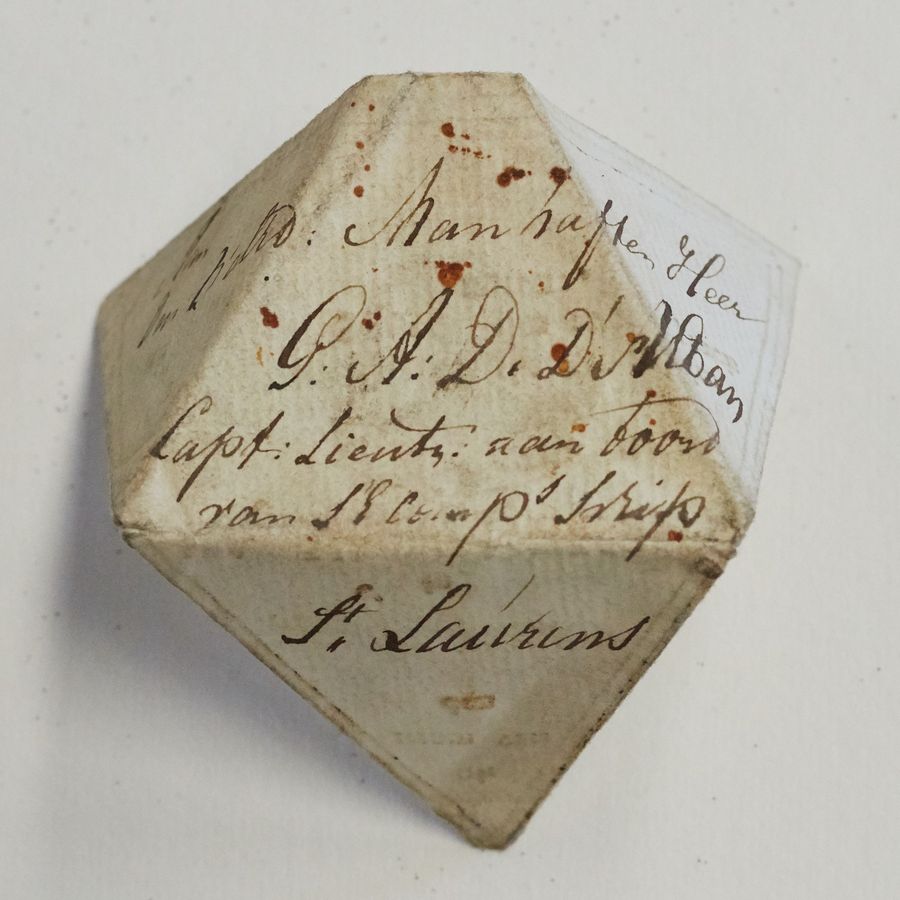 Manhaften Heer
G: A: D. D'Alban
Capt: Lieut: aan boord
van S'E Comps Schip
St. Laurens